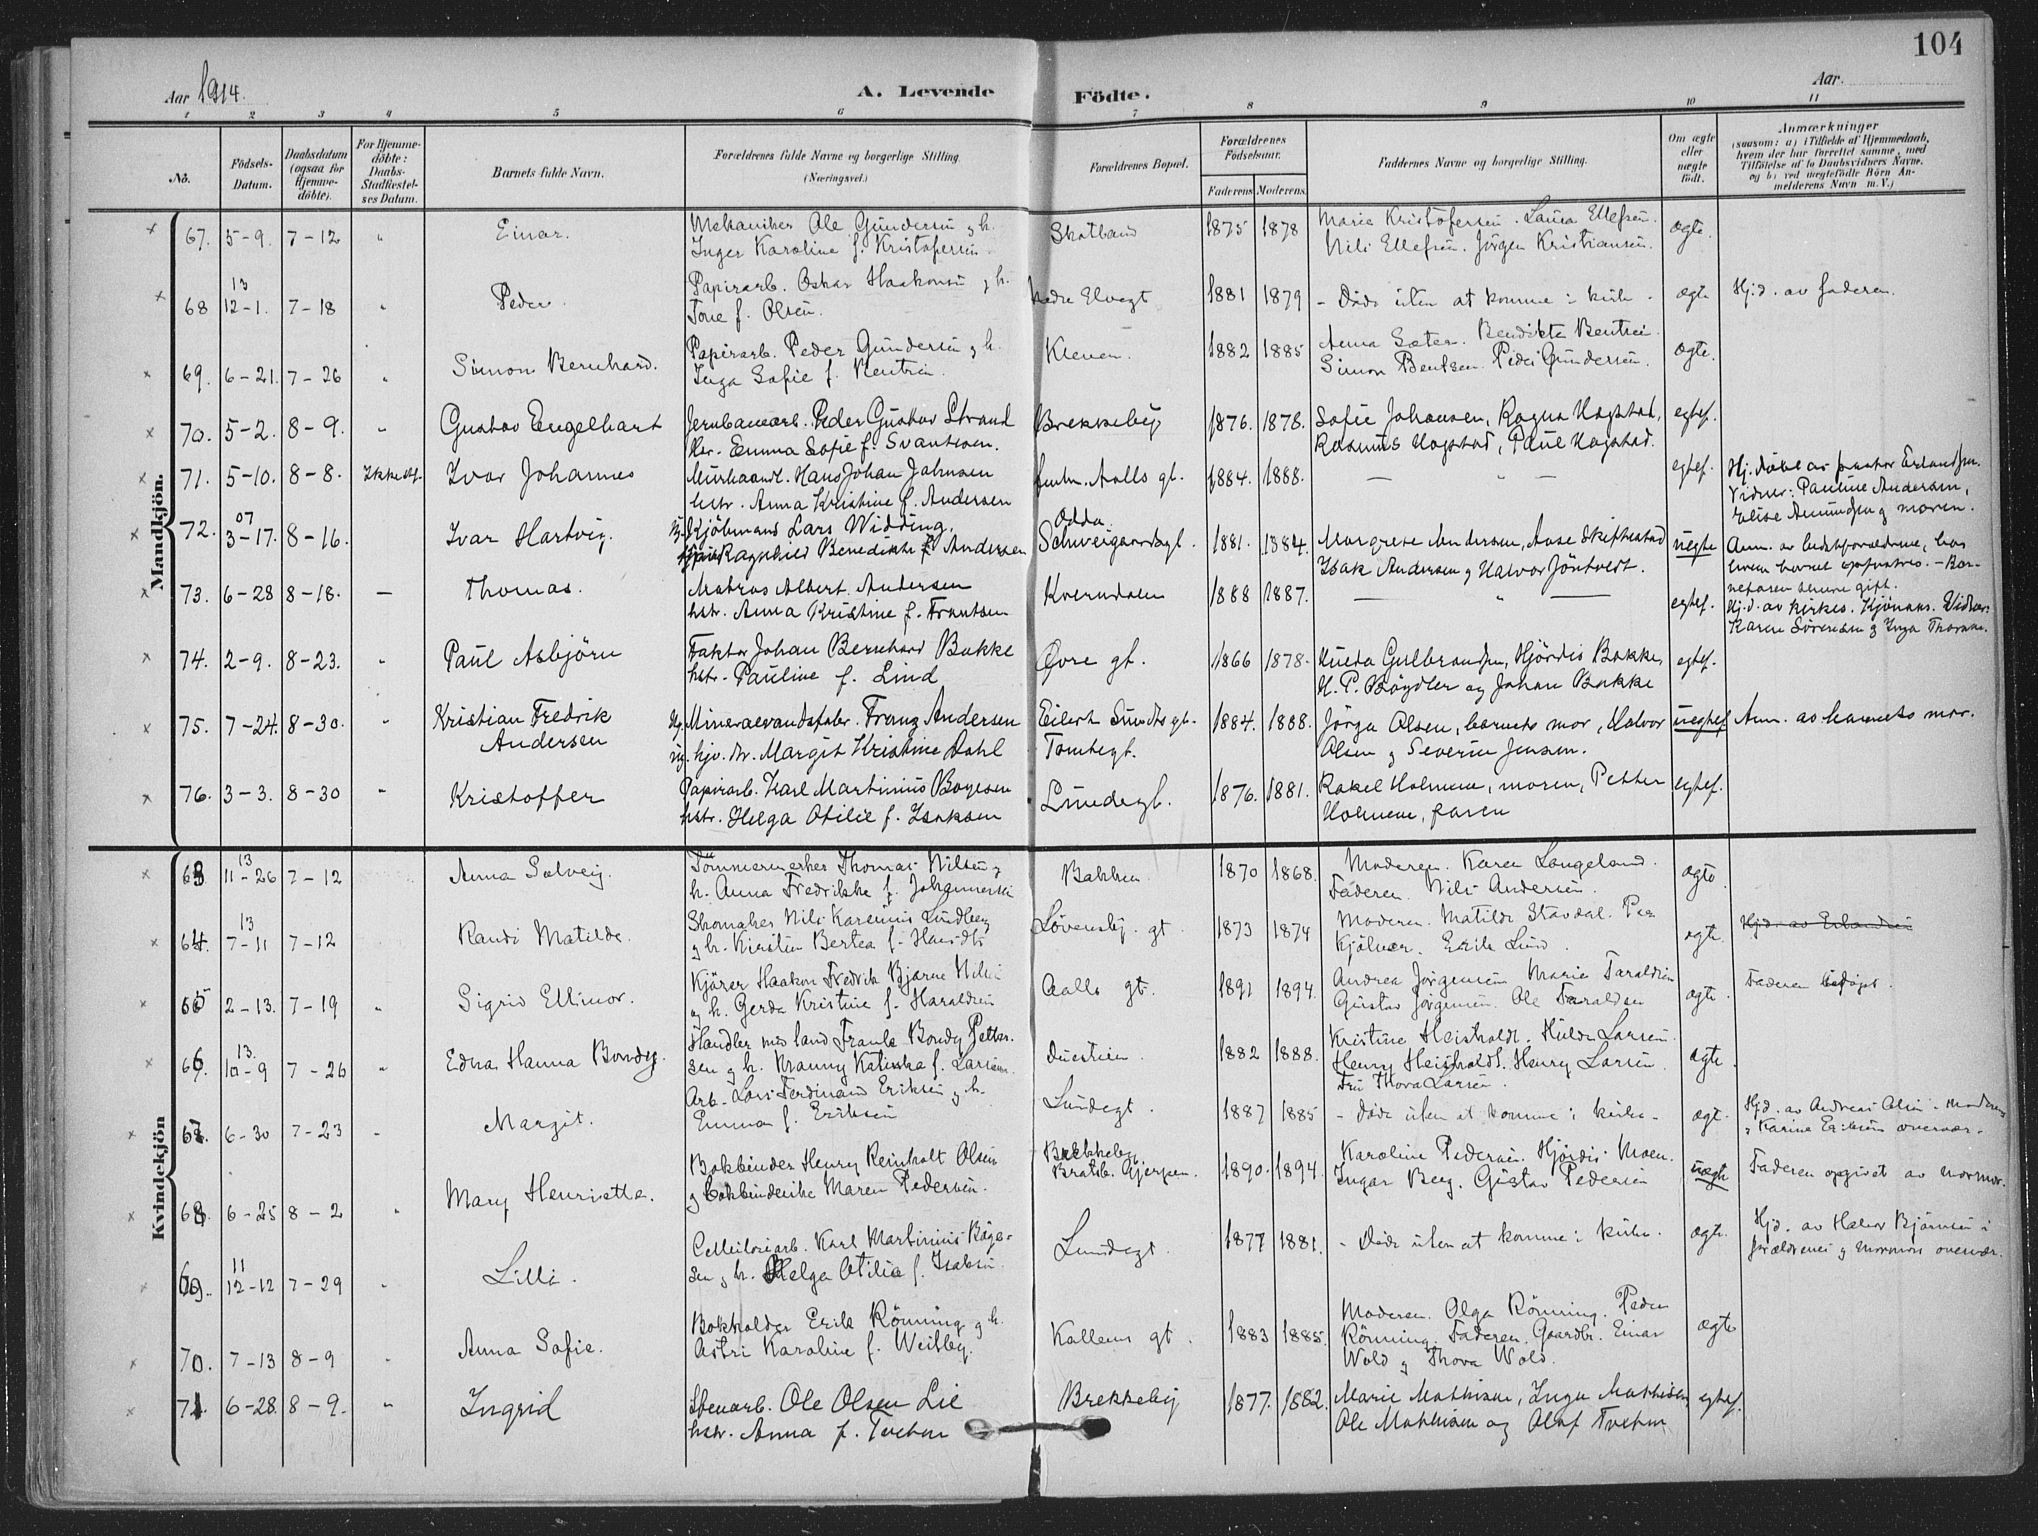 104
Aar 1914.
A. Levende Födte.
Aar
1 2 3 4 5 6 7 8 9 10 11
No.
Födsels-
Datum.
Daabsdatum
(ogsaa for
Hjemme-
döbte).
For Hjemme-
döbte:
Daabs-
Stadfæstel-
ses Datum.
Barnets fulde Navn.
Forældrenes fulde Navne og borgerlige Stilling
(Næringsvei.)
Forældrenes Bopæl.
Forældrenes
Födselsaar.
Faderens Moderens.
Faddernes Navne og borgerlige Stilling.
Om ægte
eller
uægte
födt.
Anmærkninger
(saasom: a) i Tilfælde af Hjemmedaab,
hvem der har forrettet samme, med
Tilföielse af to Daabsvidners Navne,
og b) ved uægtefödte Börn An-
melderens Navn m. V.)
Mandkjön.
67. 5-9. 7-12 " Einar. Mekaniker Ole Gundersen og h. Skotland 1875 1878 Marie Kristofersen. Laura Ellefsen. ægte.
Inger Karoline f. Kristofersen. Nils Ellefsen. Jörgen Kristiansen.
13
68 12-1. 7-18 " Peder. Papirarb. Oskar Haakonsen og h. Nedre Elvegt 1881 1879 - Döde uten at komme i kirke - ægte Hj.d. av faderen.
Tone f. Olsen.
69. 6-21. 7-26 " Simon Bernhard. Papirarb. Peder Gundersen og h. Kleven. 1882 1885 Anna Sæter. Bendikte Bentsen. ægte.
Inga Sofie f. Bentsen. Simon Bentsen. Peder Gundersen.
70. 5-2. 8-9. " Gustav Engelhart Jernbanearb. Peder Gustav Strand Brekkeby 1876. 1878. Sofie Johansen, Ragna Hogstad, egtef.
Hr. Emma Sofie f. Svantsen. Rasmus Hogstad, Paul Hogstad.
71. 5-10. 8-8. Ivar Johannes Murhaandl. Hans Johan Jahnsen Aalls gt. 1884. 1888. — " — egtef. Hj. döbt av pastor Erlandsen.
hstr. Anna Kristine f. Andersen Vidner: Pauline Andersen,
Elise Amundsen og moren.
07
72. 3-17. 8-16. Ivar Hartvig. Kjöbmand Lars Widding, Odda 1881. 1884. Margrete Andersen, Aase Skifterstad uegte
Ragnhild Benedikte f. Andersen Schweigaardsgt. Isak Andersen og Halvor Jöntvedt.
73. 6-28 8-18. — Thomas. Matros Albert Andersen Kverndalen 1888 1887. — " — egtef. Hj.d. av kirkes. Kjönaas. Vidner:
hstr. Anna Kristine f. Frantsen Karen Sörensen og Inga
74. 2-9. 8-23. " Paul Asbjörn Faktor Johan Bernhard Bakke Øvre gt. 1866 1878. Hulda Gulbrandsen, Hjördis Bakke, egtef.
hstr. Pauline f. Lind H. P. Böydler og Johan Bakke
75. 7-24. 8-30. " Kristian Fredrik Ug. Mineralvandsfabr. Franz Andersen Eilert Sundts gt. 1884. 1888. Jörga Olsen, barnets mor, Halvor uegtef Anm. av barnets mor.
Andersen ug. hjv. dr. Margit Kristine Dahl Tomtegt. Olsen og Severin Jensen.
76. 3-3. 8-30 " Kristoffer Papirarb. Karl Martinius Bøyesen Lundegt. 1876. 1881. Rakel Holmene, moren, Petter egtef.
hstr. Helga Otilie f. Isaksen Holmene, faren
Kvindekjön
13
63 11-26 7-12 Anna Solveig. Tömmermerker Thomas Nilsen og Bakken 1870 1868. Moderen. Karen Langeland. ægte.
h. Anna Fredrikke f. Johannesen Faderen. Nils Andersen.
13
64. 7-11 7-12 Randi Matilde. Skomaker Nils Karenius Lindberg Lövenskj. gt. 1873 1874 Moderen. Matilde Stavdal. Per ægte. Hjd. av Erlandsen
og h. Kirstin Bertea f. Kjölner. Erik Lund.
65 2-13. 7-19 " Sigrid Ellinor. Kjörer Haakon Fredrik Bjarne Nilsen Aalls gt. 1891 1894. Andrea Jörgensen Marie Taraldsen ægte. Faderen
og h. Gerda Kristine f. Haraldsen Gustav Jörgensen. Ole Taraldsen
13.
66. 10-9 7-26 " Edna Hanna Bondy. Handler med land Frank Bondy Petter- Duestien. 1882 1888. Kristine Heisholdt. Hulda Larsen. ægte.
sen og h. f. Larsen. Henry Heisholdt. Henry Larsen.
Fru Thora Larsen.
67. 6-30 7-23 " Margit. Arb. Lars Ferdinand Eriksen og h. Lundegt. 1887 1885 - Döde uten at komme i kirke - ægt. Hjd. av Andreas Olsen - Moderen
Emma f. Eriksen og Karine Eriksen overvær.
68. 6-25 8-2 " Mary Henriette. Bokbinder Henry Reinholt Olsen Brekkeby 1890. 1894. Karoline Pedersen. Hjördis Moen. uægte Faderen opgivet av mormor.
og bokbinderske Maren Pedersen. Bratsb. Gjerpen. Ingar Berg. Gustav Pedersen
11
69. 12-12 7-29 " Lilli. Cellulosearb. Karl Martinius Böye- Lundegt. 1877 1881. - Döde uten at komme i kirke. ægte. Hjd. av Halvor Björnsen i
sen og h. Helga Otilia f. Isaksen. forældrenes og mormors overvær.
70. 7-13 8-9 " Anna Sofie. Bokholder Erik Rönning og h. Kallens gt. 1883 1885. Moderen. Olga Rönning. Peder ægte
Astri Karoline f. Weitby. Rönning. Faderen. Gaardbr. Einar
Wold og Thora Wold.
71 6-28. 8-9. " Ingrid Stenarb. Ole Olsen Lie Brekkeby 1877. 1882. Marie Mathisen, Inga Mathisen, egtef.
hstr. Anna f. Tveten Ole Mathisen og Olaf Tveten